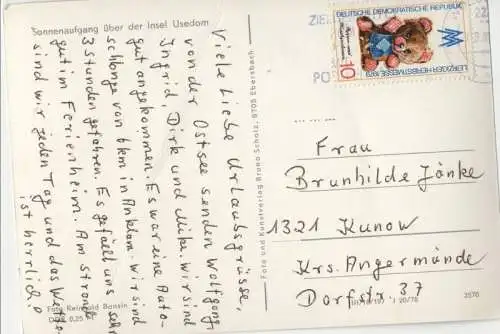 Sonnenaufgang über der Insel Usedom
Viele liebe Urlaubsgrüsse,
von der Ostsee senden Wolfgang,
Ingrid, Dirk und Mike. Wir sind
gut angekommen. Es war eine Auto-
schlange von 6km in Anklam. Wir sind
3 Stunden gefahren. Es gefällt uns sehr
gut im Ferienheim. Am Strand
sind wir jeden Tag und das Wetter
ist herrlich!
Foto Reinhold Bansin
0,25
Foto und Kunstverlag Bruno Scholz, 8705 Ebersbach
DEUTSCHE DEMOKRATISCHE REPUBLIK
LEIPZIGER HERBSTMESSE 1979
10
MM
Frau
Brunhilde Jänke
1321 Kunow
Krs. Angermünde
Dorfstr 37
3570